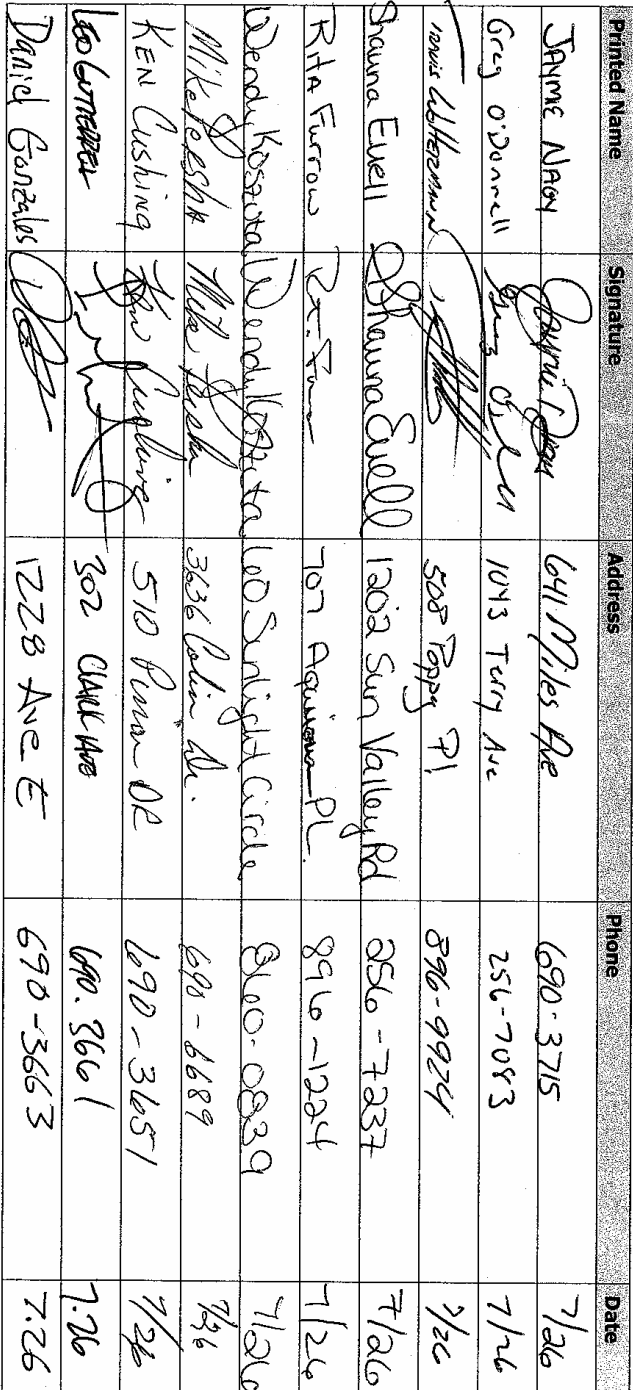 Printed Name Signature Address Phone Date
JAYME NAGY 641 Miles Ave 690-3715 7/26
Greg O'Donnell 1043 Terry Ave 256-7083 7/26
508 Poppy Pl 896-9924 7/26
Shauna Euell Shauna Euell 1202 Sun Valley Rd 256-7237 7/26
RitA Furrow 707 PL. 896-1224 7/26
Wendy Koszuta Wendy Koszuta 60 Sunlight Circle 860-0839 7/26
Mike Peshk Mike 3636 Colin Dr. 690-6689 7/26
KEN Cushing Ken Cushing 510 DR 690-3651 7/26
LEO GUTIERREZ 302 CLARK AVE 690.3661 7.26
Daniel Gonzales 1228 Ave E 690-3663 7.26